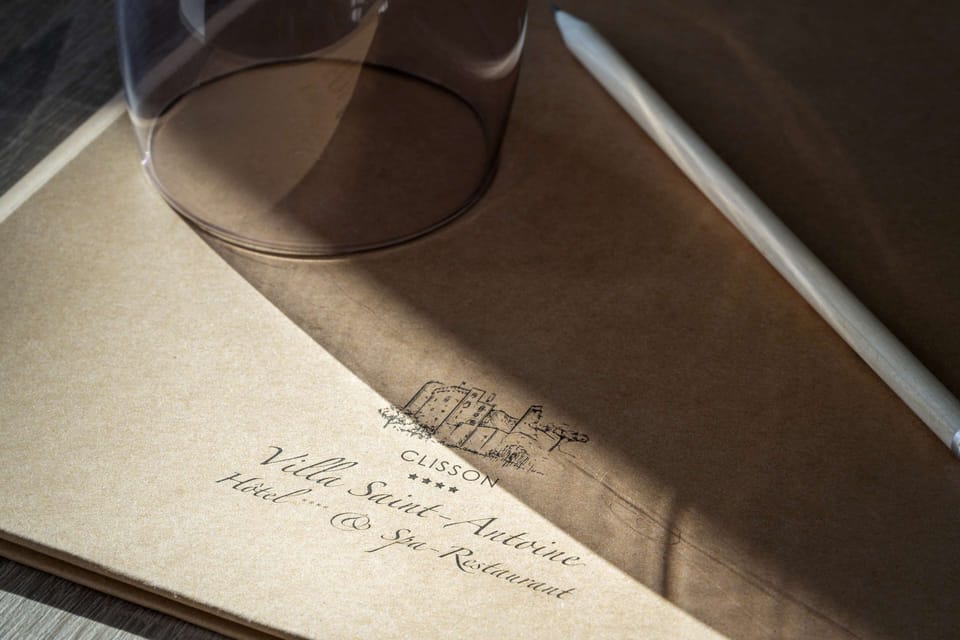 CLISSON
★★★★
Villa Saint-Antoine
Hôtel **** & Spa-Restaurant